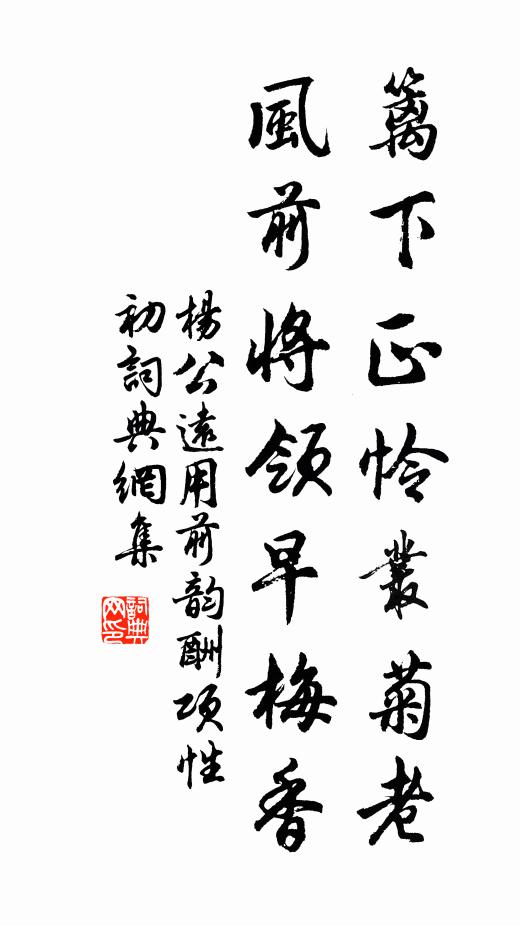 篱下正怜叢菊老
風前將領早梅香
楊公遠用前韵酬項性
初詞典網集
詞典网印